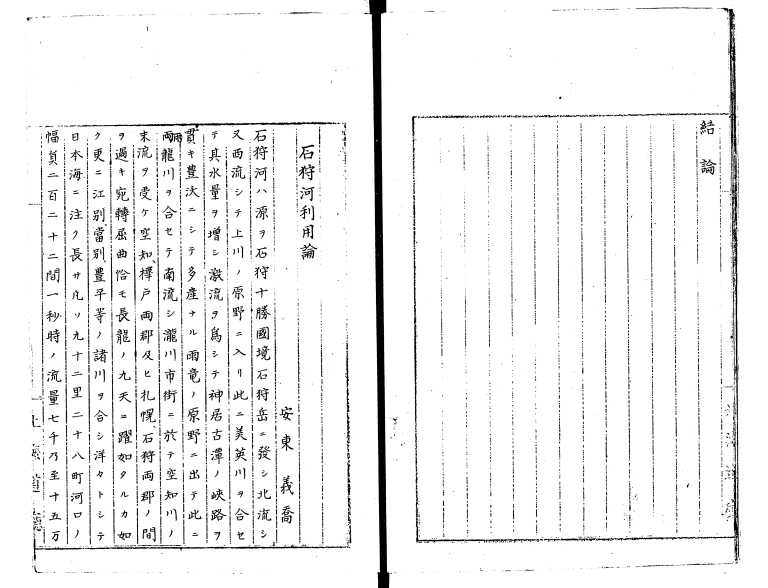 結論
石狩河利用論
安東義喬
石狩河ハ源ヲ石狩十勝國境石狩岳ニ發シ北流シ
又西流シテ上川ノ原野ニ入リ此ニ美英川ヲ合セ
テ其水量ヲ增シ激流ヲ爲シテ神居古潭ノ峽路ヲ
貫キ豊沃ニシテ多産ナル雨竜ノ原野ニ出テ此ニ
雨龍川ヲ合セテ南流シ瀧川市街ニ於テ空知川ノ
末流ヲ受ケ空知、樺戸両郡及ヒ札幌、石狩両郡ノ間
ヲ過キ宛轉屈曲恰モ長龍ノ九天ニ躍如タルカ如
ク更ニ江別當別豊平等ノ諸川ヲ合シ洋々トシテ
日本海ニ注ク長サ凡ソ九十二里二十八町河口ノ
幅員二百二十二間一秒時ノ流量七千乃至十五万